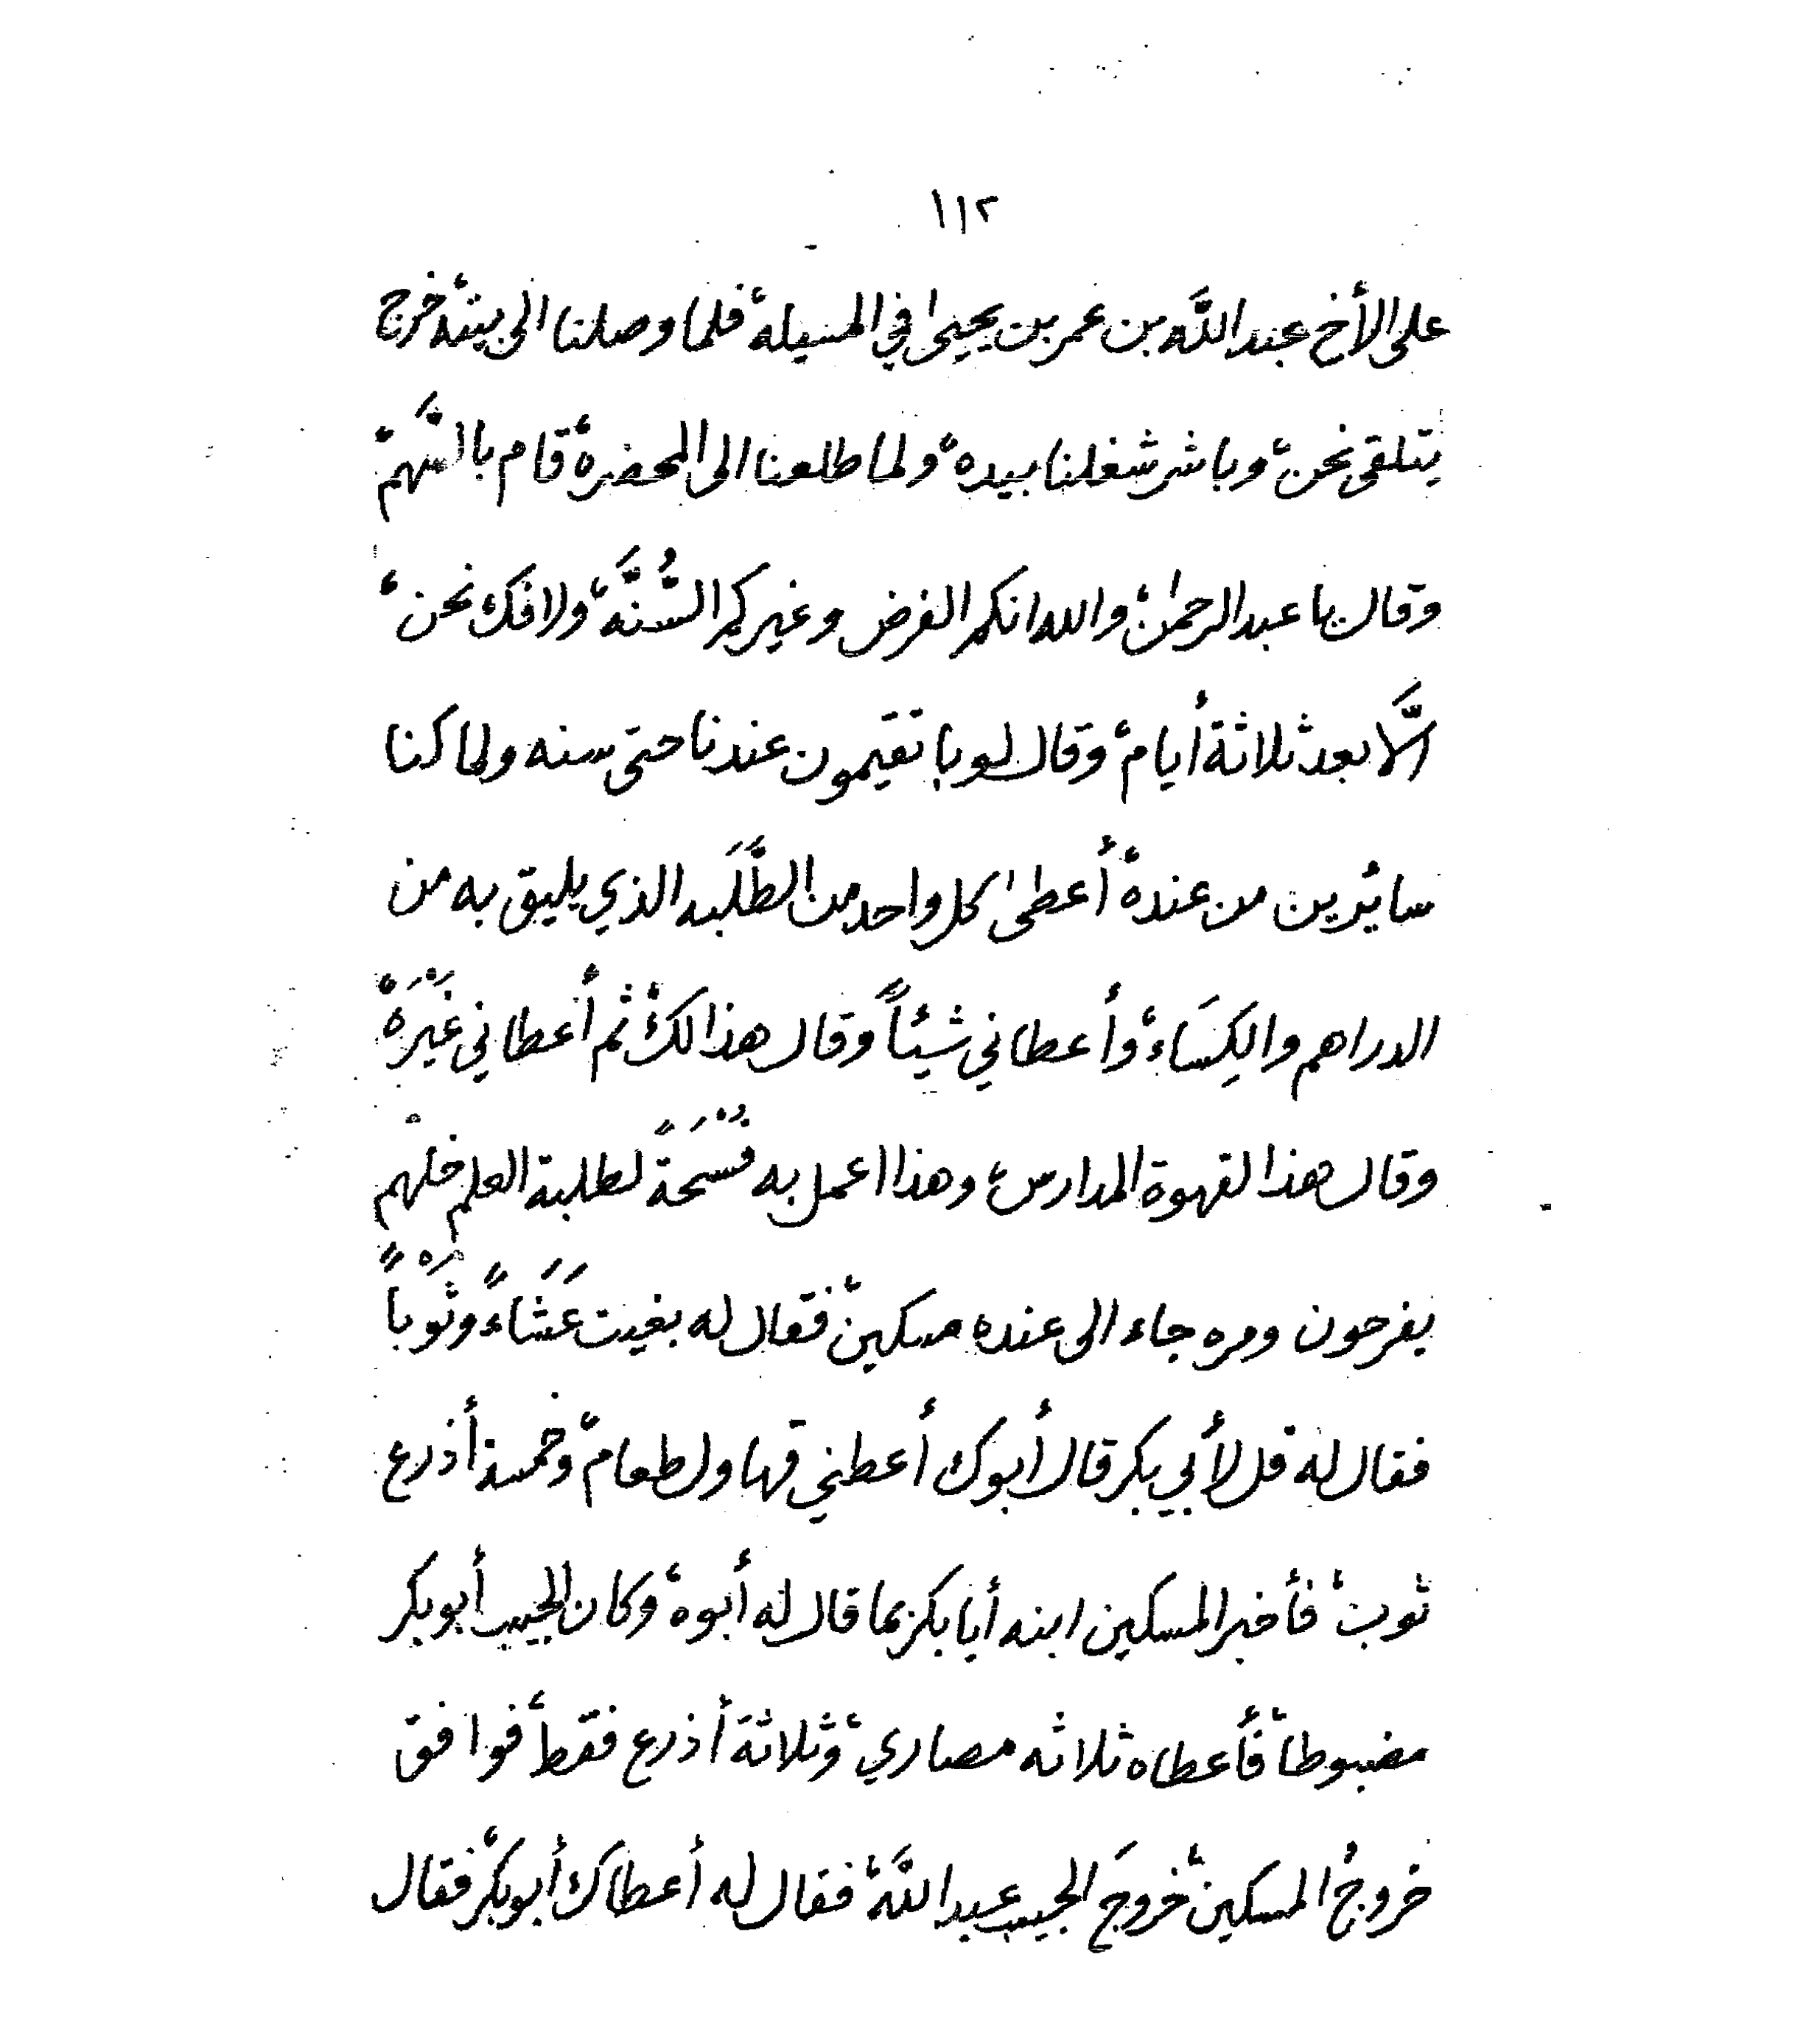 ١١٢
على الأخ عبد اللَّه بن عمر بن يحيى في المسيلة، فلما وصلنا الى بيته خرج
يتلقى نحن، وباشر شغلنا بيده، ولما طلعنا الى المحضرة، قام بالنَّهم
وقال يا عبد الرحمٰن، والله انكم الفرض وغيركم السُّنَّة، ولا فك نحن،
الَّا بعد ثلاثة أيام، وقال لو با تقيمون عندنا حتى سنه ولما كنا
سائرين من عنده، أعطىٰ كل واحد من الطَّلَبه الذي يليق به من
الدراهم والكِسَاء، وأعطاني شيئاً وقال هذا لك، ثم أعطاني غَيْرَهْ
وقال هذا لقهوة المدارس، وهذا اعمل به فُسْحَةً لطلبة العلم خلهم
يفرحون ومره جاء الى عنده مسكين، فقال له بغيت عَشَاءً وثَوْباً
فقال له قل لأبي بكر قال أبوك أعطني قهاول طعام، وخمسة أذرع
ثوب، فأخبر المسكين ابنه أبا بكر بما قال له أبوه، وكان الحبيب أبو بكر
مضبوطاً، فأعطاه ثلاثه مصاري، وثلاثة أذرع فقط، فوافق
خروجُ المسكين، خروجَ الحبيب عبد اللَّه، فقال له أعطاك أبو بكر، فقال